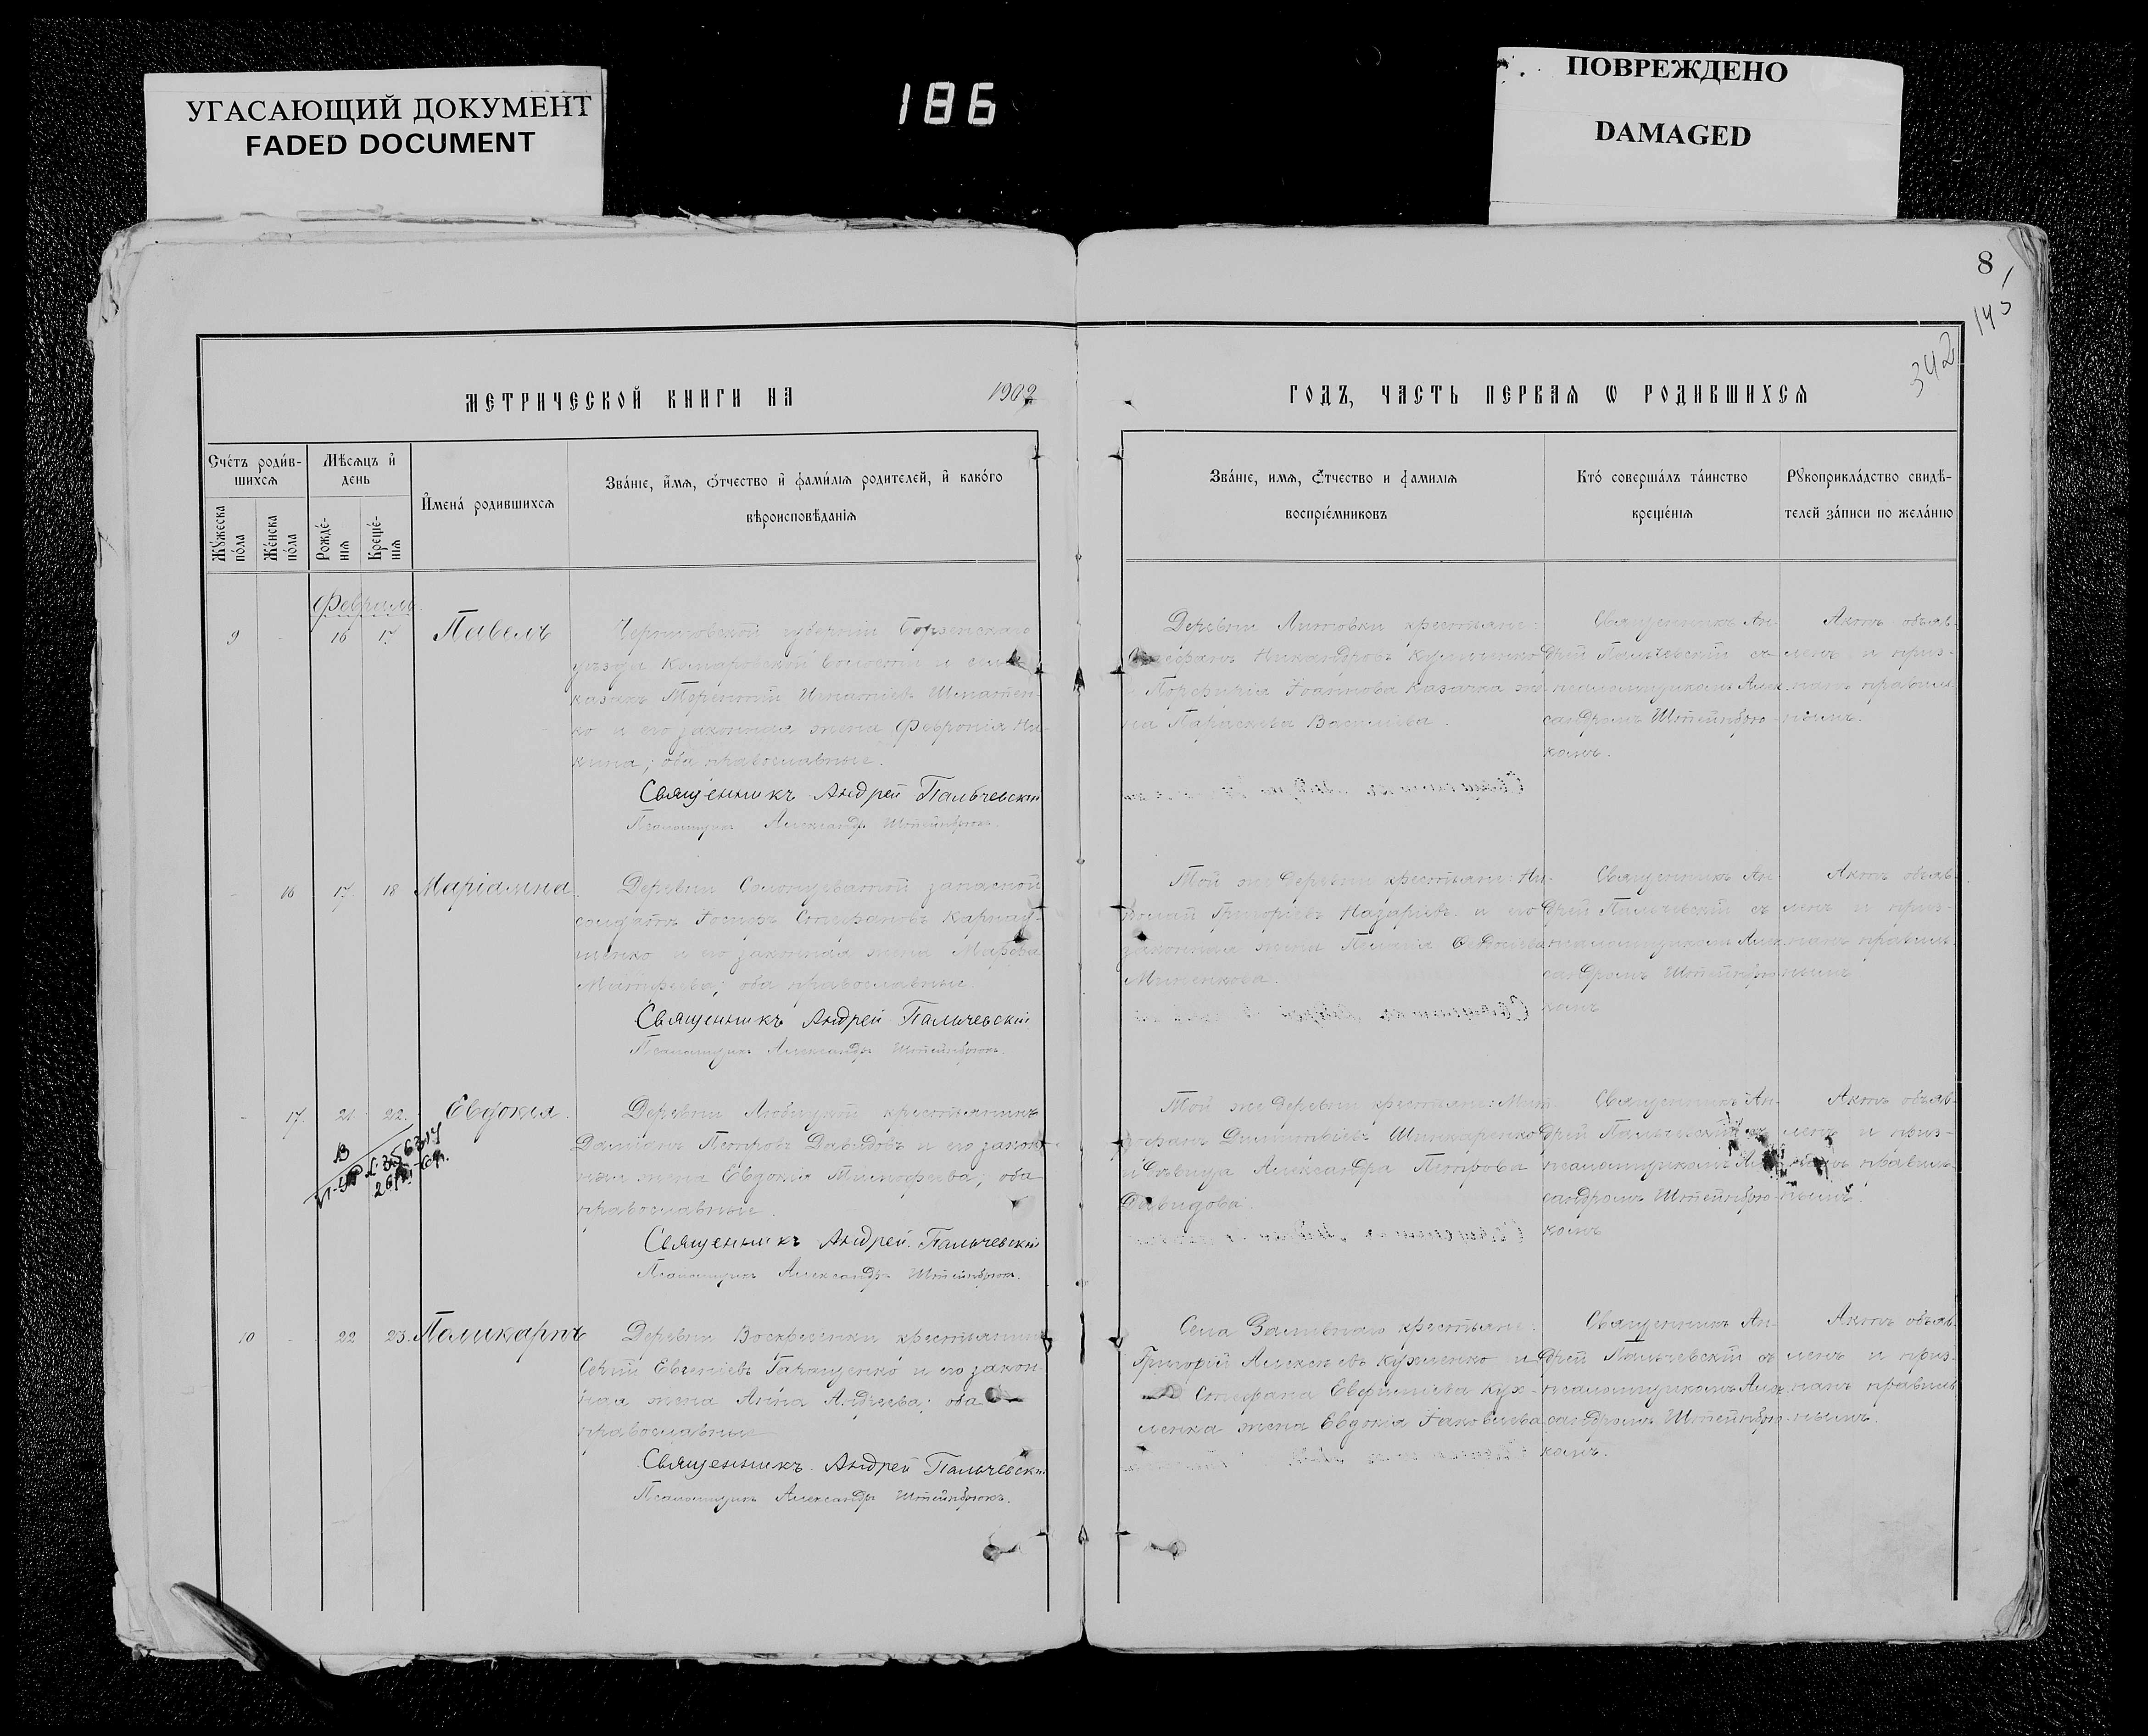 УГАСАЮЩИЙ ДОКУМЕНТ
FADED DOCUMENT
186
ПОВРЕЖДЕНО
DAMAGED
8
143
342
МЕТРИЧЕСКОЙ КНИГИ НА 1902 ГОДЪ, ЧАСТЬ ПЕРВАѦ Ѡ РОДИВШИХСѦ
Счéтъ роди́в-
шихсѧ
Мѣсѧцъ и҆
день
Мꙋ́жеска
по́ла
Же́нска
по́ла
Рожде́-
нїѧ
Креще́-
нїѧ
И҆мена́ родившихсѧ
Зва́нїе, и҆́мѧ, ѻ҆́тчество и҆ фами́лїѧ родителей, и҆ како́гѡ
вѣроисповѣ́данїѧ
Зва́нїе, имѧ, ѻ҆́тчество и фамилїѧ
воспрїе́мниковъ
Кто́ соверша́лъ та́инство
креще́нїѧ
Рꙋкоприкла́дство свидѣ́-
телей за́писи по жела́нїю
Февраль
9 - 16 17 Павелъ
Черниговской губерніи Борзенскаго
уѣзда Комаровской волости и села
казакъ Терентій Игнатіевъ Шматен-
ко и его законная жена Февронія Ни-
кина; оба православные.
Священникъ Андрей Пальчевскій
Псаломщикъ Александръ Штейнбрюкъ.
Деревни Литовки крестьяне:
Никандровъ
Порфирія Іоаннова казачка же-
на Параскева Василіева.
Священникъ Ан-
дрей Пальчевскій съ
псаломщикомъ Алек-
сандромъ Штейнбрю-
комъ.
Актъ объяв-
ленъ и приз-
нанъ правиль-
нымъ.
- 16 17 18 Маріамна
Деревни запасной
солдатъ Іосифъ Стефановъ Карпау-
шенко и его законная жена Марфа
Матфеева; оба православные.
Священникъ Андрей Пальчевскій
Псаломщикъ Александръ Штейнбрюкъ.
Той же деревни крестьяне: Ни-
колай Григоріевъ Назаріевъ и его
законная жена Пелагія
Миненкова.
Священникъ Ан-
дрей Пальчевскій съ
псаломщикомъ Алек-
сандромъ Штейнбрю-
комъ
Актъ объяв-
ленъ и приз-
нанъ правиль-
нымъ
- 17. 21 22. Евдокія.
Деревни Любицкой крестьянинъ
Даміанъ Петровъ Давидовъ и его закон-
ная жена Евдокія Тимофеева; оба
православные.
Священникъ Андрей Пальчевскій
Псаломщикъ Александръ Штейнбрюкъ.
Той же деревни крестьяне: Мит-
рофанъ Шинкаренко
и дѣвица Александра Петрова
Давидова.
Священникъ Ан-
дрей Пальчевскій съ
псаломщикомъ Алек-
сандромъ Штейнбрю-
комъ
Актъ объяв-
ленъ и приз-
нанъ правиль-
нымъ.
10 - 22 23. Поликарпъ
Деревни Воскресенки крестьянинъ
Сергій Евгеніевъ и его закон-
ная жена Анна Андреева; оба
православные
Священникъ Андрей Пальчевскій
Псаломщикъ Александръ Штейнбрюкъ.
Села Заливнаго крестьяне:
Григорій Алексѣевъ Кухленко и
Стефана Евфиміева Кух-
ленка жена Евдокія Іаковлева.
Священникъ Ан-
дрей Пальчевскій съ
псаломщикомъ Алек-
сандромъ Штейнбрю-
комъ.
Актъ объяв-
ленъ и приз-
нанъ правиль-
нымъ.